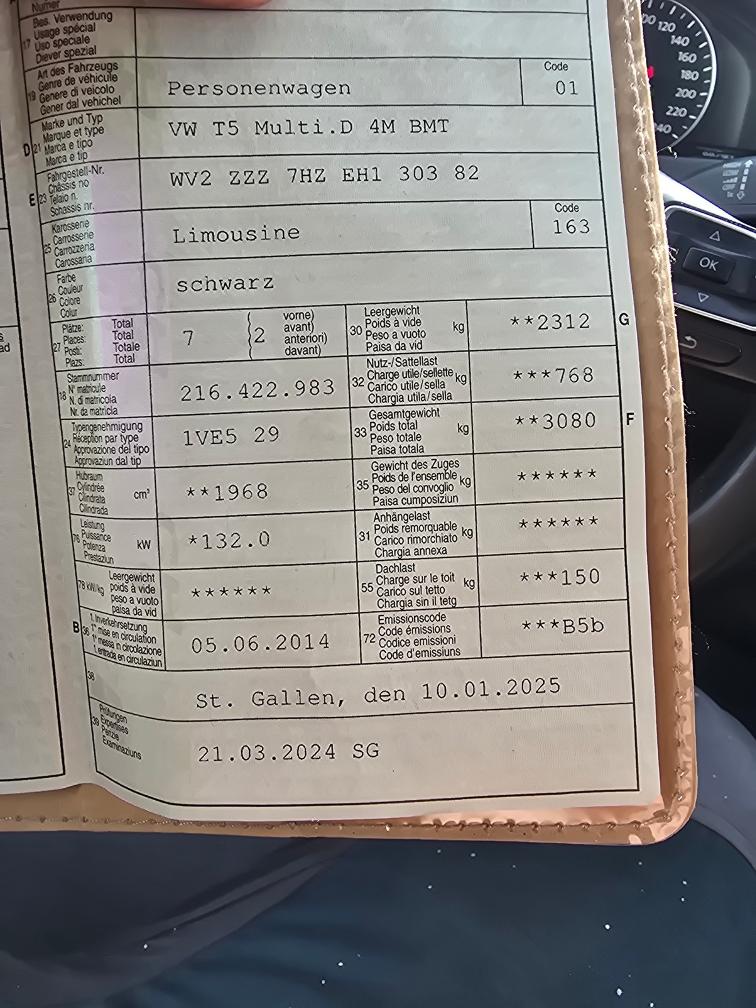 Numer
17
Bes. Verwendung
Usage spécial
Uso speciale
Diever spezial
19
Art des Fahrzeugs
Genre de véhicule
Genere di veicolo
Gener dal vehichel
Personenwagen
Code
01
D
21
Marke und Typ
Marque et type
Marca e tipo
Marca e tip
VW T5 Multi.D 4M BMT
E
23
Fahrgestell-Nr.
Châssis no
Telaio n.
Schassis nr.
WV2 ZZZ 7HZ EH1 303 82
25
Karosserie
Carrosserie
Carrozzeria
Carossaria
Limousine
Code
163
26
Farbe
Couleur
Colore
Colur
schwarz
27
Plätze: Total
Places: Total
Posti: Totale
Plazs: Total
7
2
vorne)
avant)
anteriori)
davant)
30
Leergewicht
Poids à vide
Peso a vuoto
Paisa da vid
kg
**2312
G
18
Stammnummer
N° matricule
N. di matricola
Nr. da matricla
216.422.983
32
Nutz-/Sattellast
Charge utile/sellette
Carico utile/sella
Chargia utila/sella
kg
***768
24
Typengenehmigung
Réception par type
Approvazione del tipo
Approvaziun dal tip
1VE5 29
33
Gesamtgewicht
Poids total
Peso totale
Paisa totala
kg
**3080
F
37
Hubraum
Cylindrée
Cilindrata
Cilindrada
cm³
**1968
35
Gewicht des Zuges
Poids de l'ensemble
Peso del convoglio
Paisa cumposiziun
kg
******
76
Leistung
Puissance
Potenza
Prestaziun
kW
*132.0
31
Anhängelast
Poids remorquable
Carico rimorchiato
Chargia annexa
kg
******
78 kW/kg
Leergewicht
poids à vide
peso a vuoto
paisa da vid
******
55
Dachlast
Charge sur le toit
Carico sul tetto
Chargia sin il tetg
kg
***150
B
36
1. Inverkehrsetzung
1re mise en circulation
1a messa in circolazione
1. entrada en circulaziun
05.06.2014
72
Emissionscode
Code émissions
Codice emissioni
Code d'emissiuns
***B5b
38
St. Gallen, den 10.01.2025
39
Prüfungen
Expertises
Perizie
Examinaziuns
21.03.2024 SG
120
140
160
180
200
220
OK